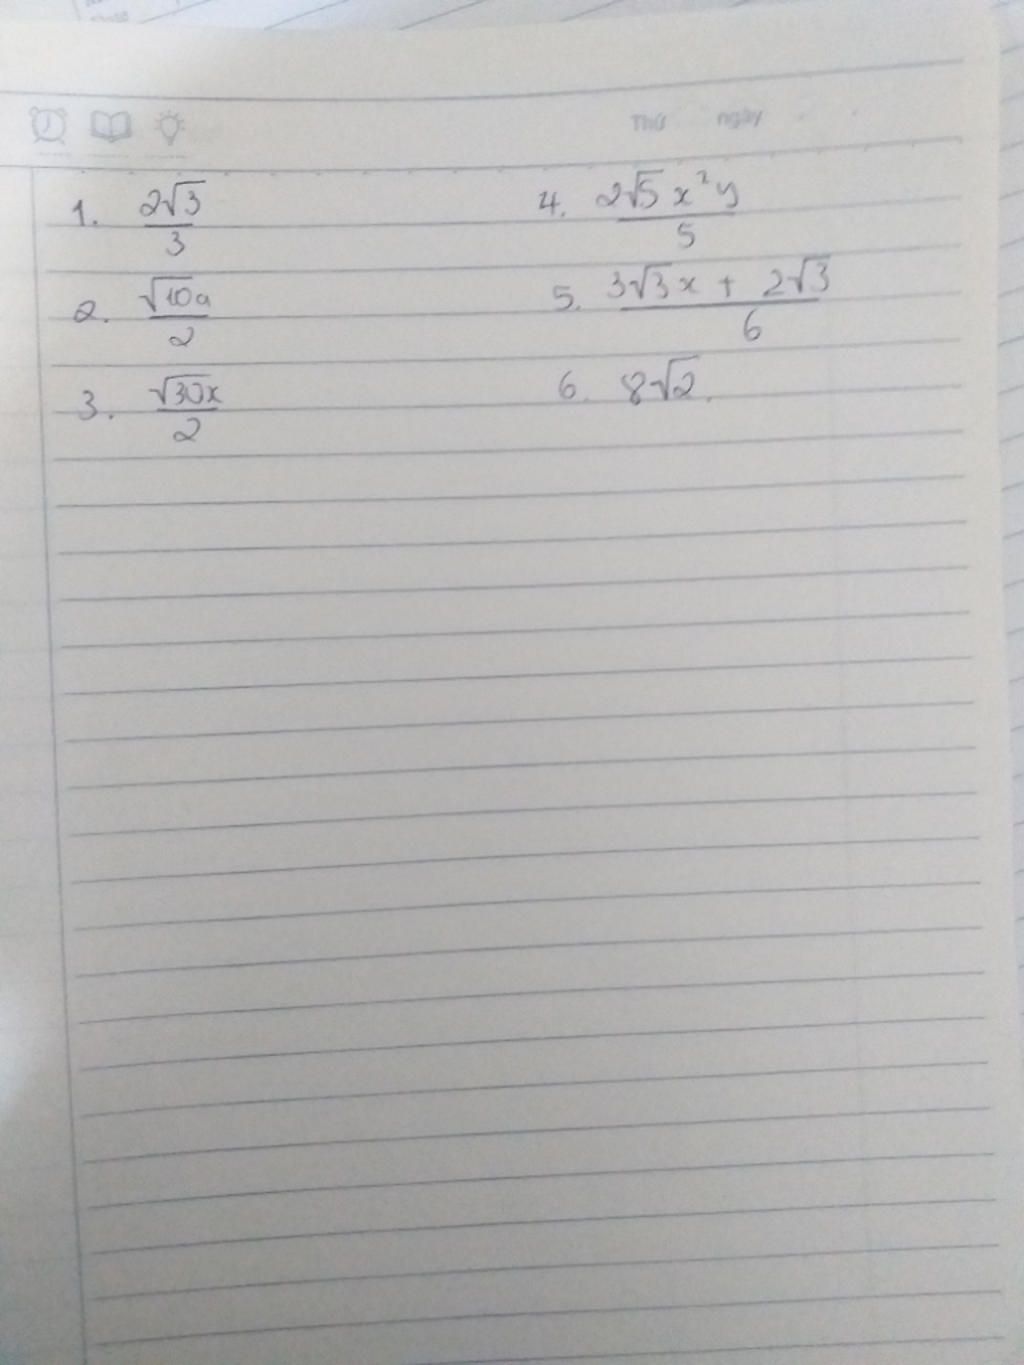 Thứ ngày
1. 2√3/3
2. √10a/2
3. √30x/2
4. 2√5 x²y/5
5. 3√3x + 2√3/6
6. 8√2.